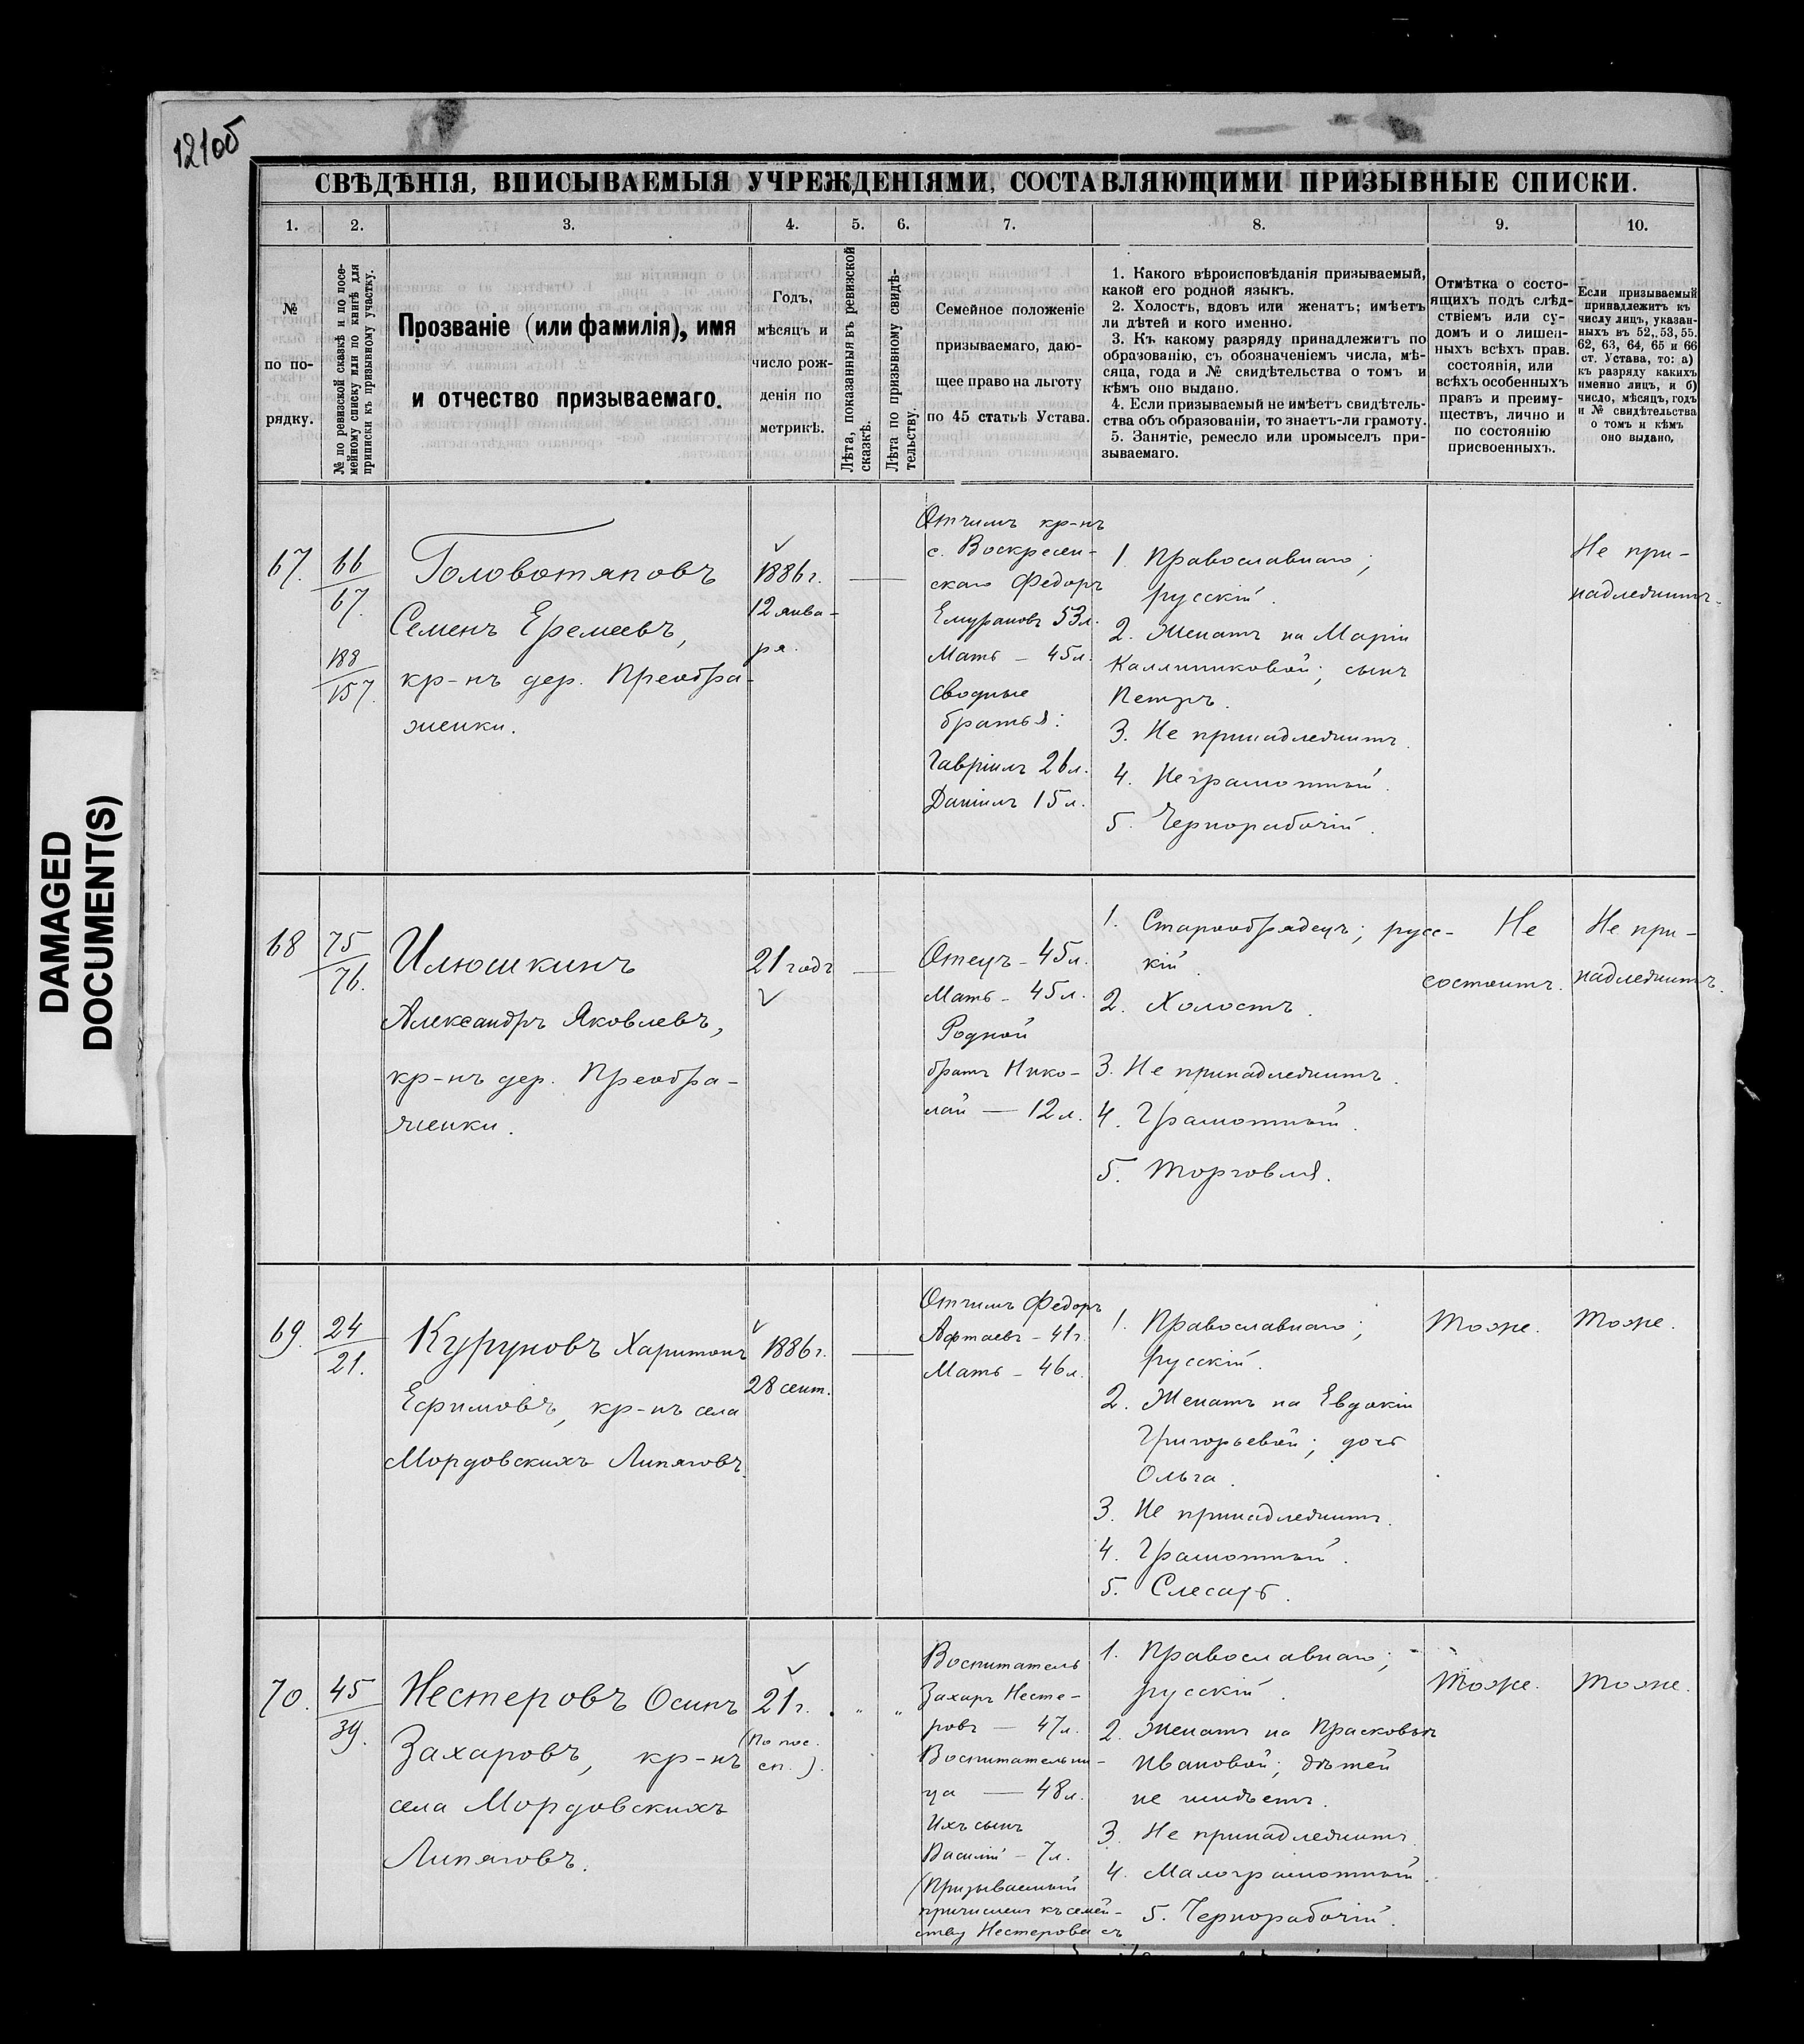 121об
СВѢДѢНІЯ, ВПИСЫВАЕМЫЯ УЧРЕЖДЕНІЯМИ, СОСТАВЛЯЮЩИМИ ПРИЗЫВНЫЕ СПИСКИ.
1. 2. 3. 4. 5. 6. 7. 8. 9. 10.
№
по по-
рядку.
№ по ревизской сказкѣ и по посе-
мейному списку или по книгѣ для
приписки къ призывному участку.
Прозваніе (или фамилія), имя
и отчество призываемаго.
Годъ,
мѣсяцъ и
число рож-
денія по
метрикѣ.
Лѣта, показанныя въ ревизской
сказкѣ.
Лѣта по призывному свидѣ-
тельству.
Семейное положеніе
призываемаго, даю-
щее право на льготу
по 45 статьѣ Устава.
1. Какого вѣроисповѣданія призываемый,
какой его родной языкъ.
2. Холостъ, вдовъ или женатъ; имѣетъ
ли дѣтей и кого именно.
3. Къ какому разряду принадлежитъ по
образованію, съ обозначеніемъ числа, мѣ-
сяца, года и № свидѣтельства о томъ и
кѣмъ оно выдано.
4. Если призываемый не имѣетъ свидѣтель-
ства объ образованіи, то знаетъ-ли грамоту.
5. Занятіе, ремесло или промыселъ при-
зываемаго.
Отмѣтка о состо-
ящихъ подъ слѣд-
ствіемъ или су-
домъ и о лишен-
ныхъ всѣхъ прав.
состоянія, или
всѣхъ особенныхъ
правъ и преиму-
ществъ, лично и
по состоянію
присвоенныхъ.
Если призываемый
принадлежитъ къ
числу лицъ, указан-
ныхъ въ 52, 53, 55,
62, 63, 64, 65 и 66
ст. Устава, то: а)
къ разряду какихъ
именно лицъ, и б)
число, мѣсяцъ, годъ
и № свидѣтельства
о томъ и кѣмъ
оно выдано.
67.
66
67.
188
157.
Головотяповъ
Семенъ Еремеевъ,
кр-нъ дер. Преобра-
женки.
1886 г.
12 янва-
ря.
Отчимъ кр-нъ
с. Воскресен-
скаго Федоръ
Емурановъ 53 л.
Мать - 45 л.
Сводные
братья:
Гавріилъ 26 л.
Даніилъ 15 л.
1. Православнаго;
русскій.
2. Женатъ на Маріи
Каллиниковой; сынъ
Петръ.
3. Не принадлежитъ.
4. Неграмотный.
5. Чернорабочій.
Не при-
надлежитъ.
68
75
76.
Илюшкинъ
Александръ Яковлевъ,
кр-нъ дер. Преобра-
женки.
21 годъ
Отецъ - 45 л.
Мать - 45 л.
Родной
братъ Нико-
лай - 12 л.
1. Старообрядецъ; русс-
кій.
2. Холостъ.
3. Не принадлежитъ.
4. Грамотный.
5. Торговля.
Не
состоитъ.
Не при-
надлежитъ.
69.
24
21.
Куруновъ Харитонъ
Ефимовъ, кр-нъ села
Мордовскихъ Липяговъ.
1886 г.
28 сент.
Отчимъ Федоръ
Афтаевъ - 41 г.
Мать - 46 л.
1. Православнаго;
русскій.
2. Женатъ на Евдокіи
Григорьевой; дочь
Ольга.
3. Не принадлежитъ.
4. Грамотный.
5. Слесарь.
Тоже.
Тоже.
70.
45
39.
Нестеровъ Осипъ
Захаровъ, кр-нъ
села Мордовскихъ
Липяговъ.
21 г.
(По пос.
сп.).
" "
Воспитатель
Захаръ Несте-
ровъ - 47 л.
Воспитательни-
ца - 48 л.
Ихъ сынъ
Василій - 7 л.
(Призываемый
причисленъ къ семей-
ству Нестерова съ
1. Православнаго;
русскій.
2. Женатъ на Прасковьи
Ивановой; дѣтей
не имѣетъ.
3. Не принадлежитъ.
4. Малограмотный.
5. Чернорабочій.
Тоже.
Тоже.
DAMAGED
DOCUMENT(S)